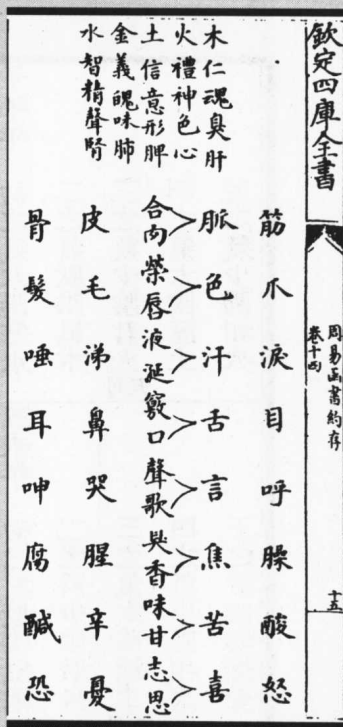 欽定四庫全書
周易函書約存
卷十四
十五
木仁魂臭肝
火禮神色心
土信意形脾
金義魄味肺
水智精聲腎
筋爪淚目呼臊酸怒
脈色汗舌言焦苦喜
合肉榮唇液涎竅口聲歌臭香味甘志思
皮毛涕鼻哭腥辛憂
骨髮唾耳呻腐鹹恐